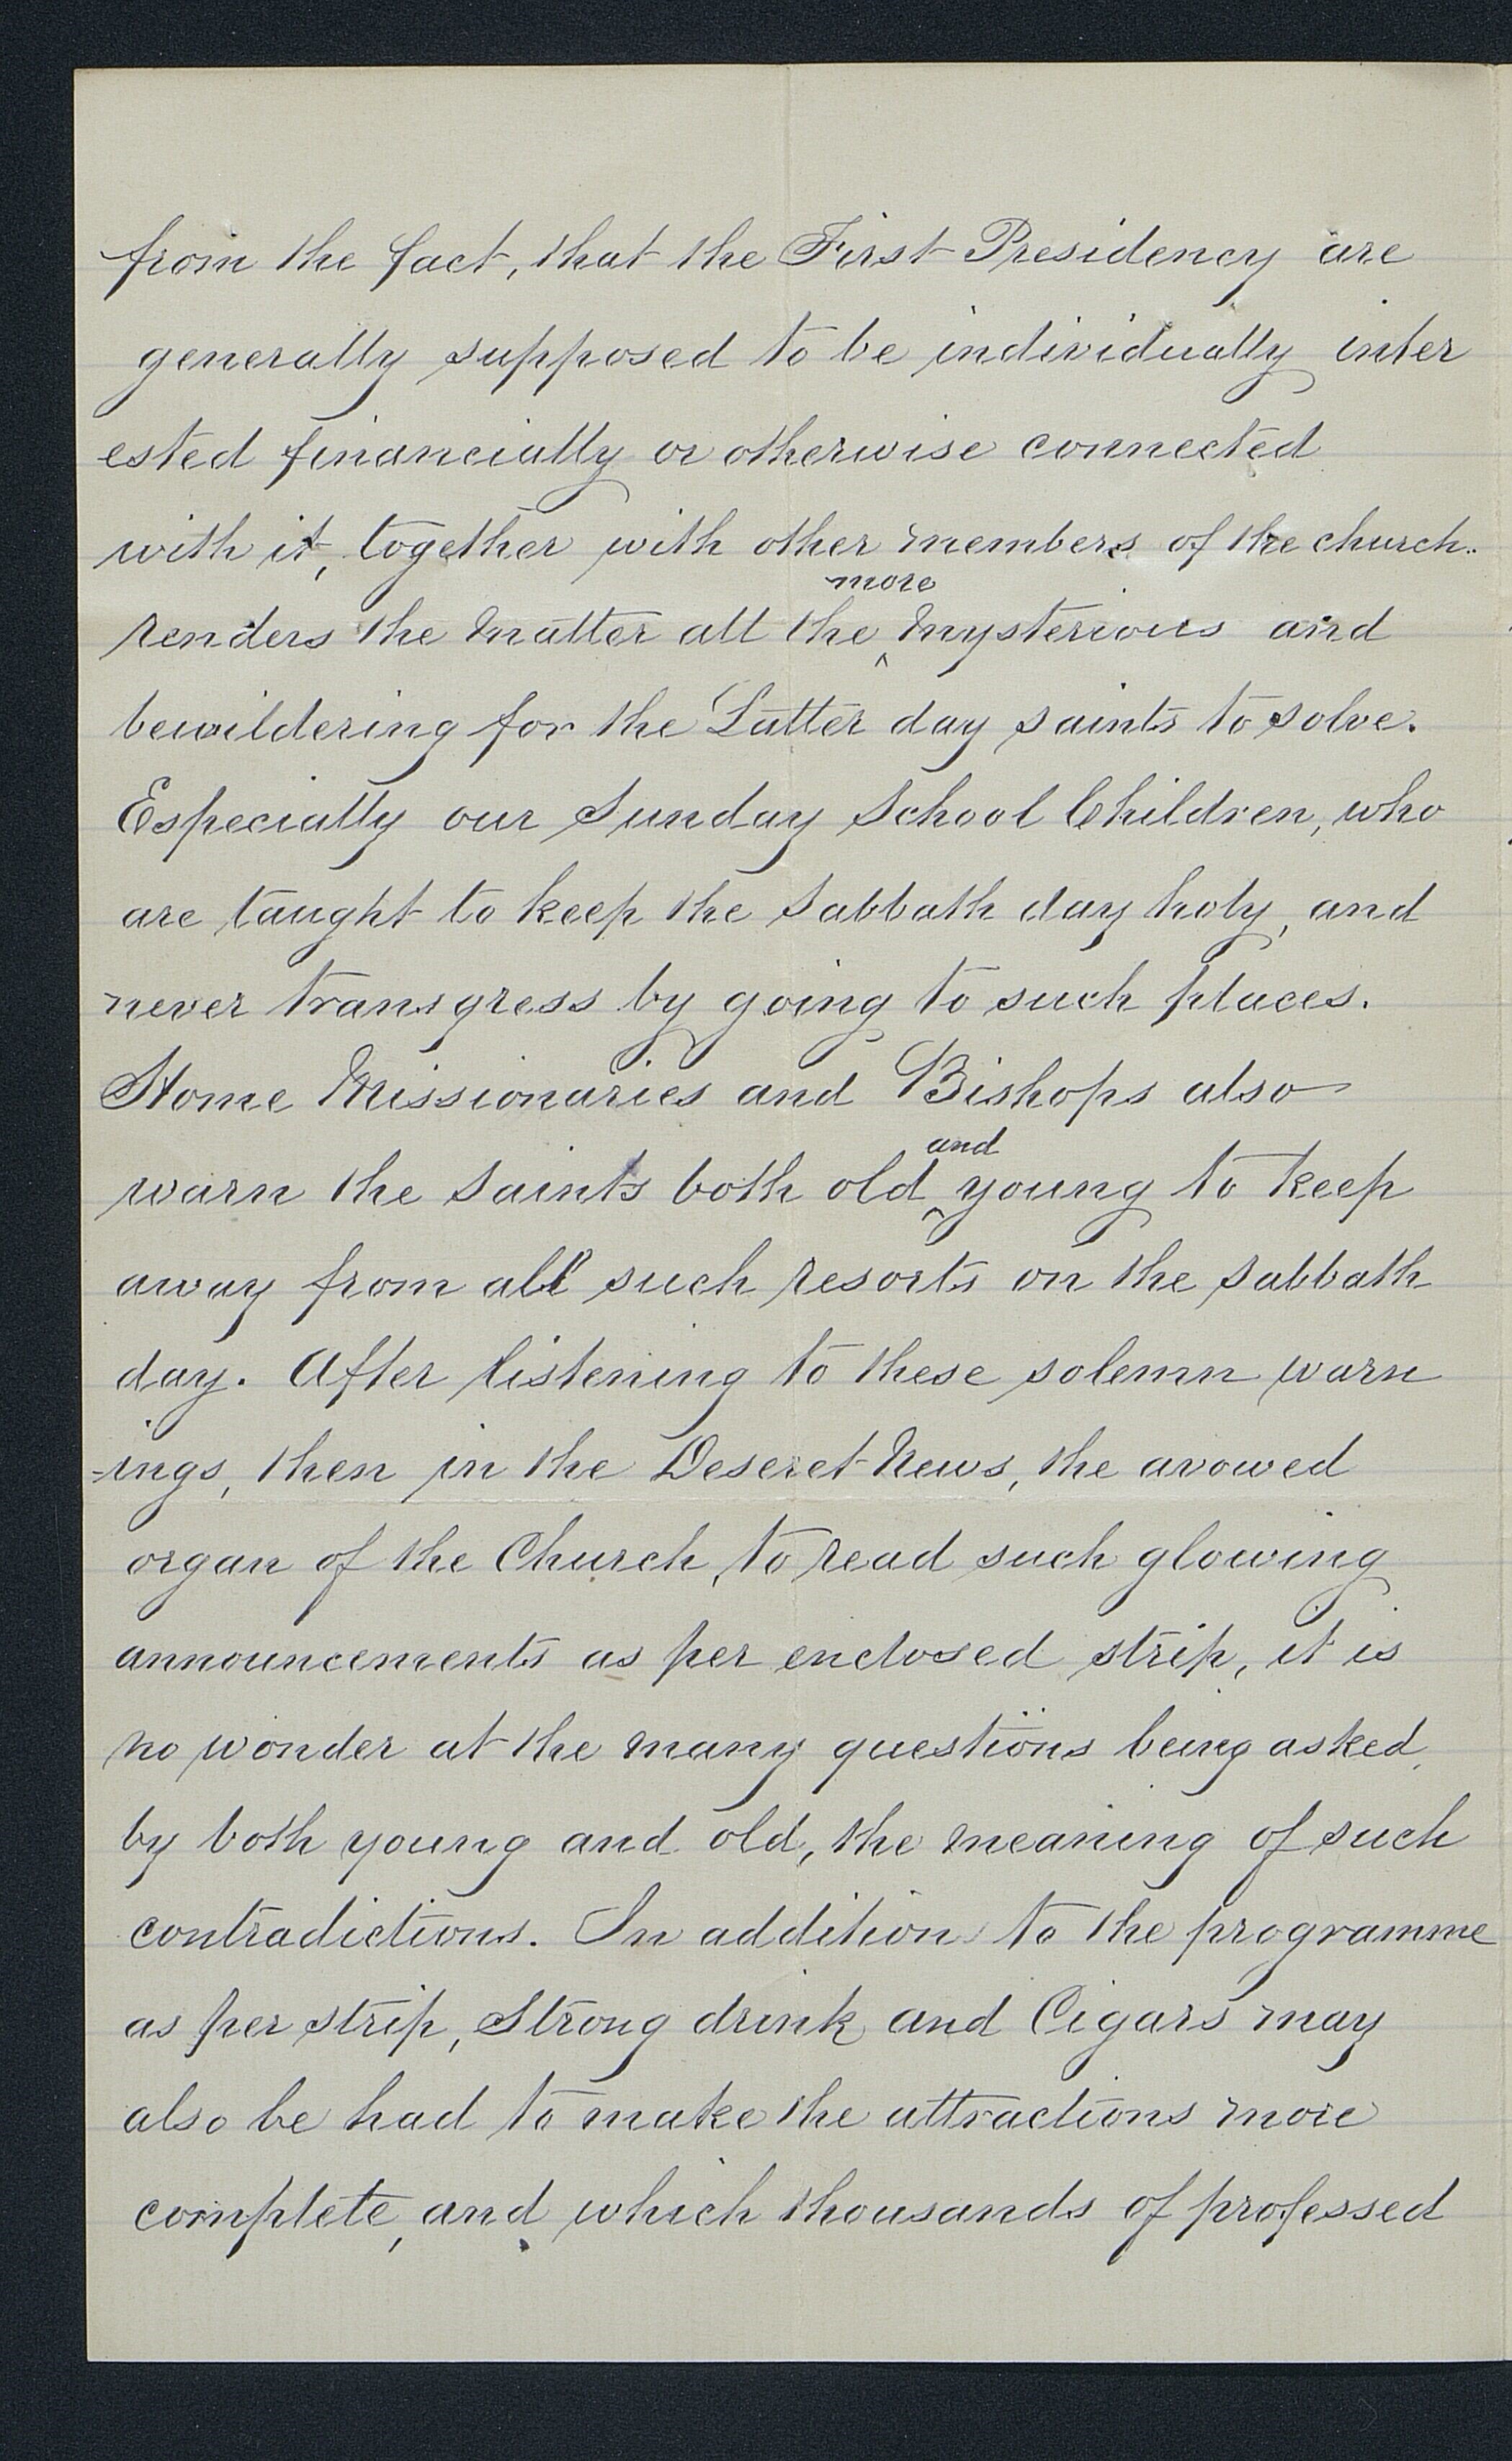 from the fact, that the First Presidency are
generally supposed to be individually inter
ested financially or otherwise connected
with it, together with other members of the church.
more
renders the matter all the ^ mysterious and
bewildering for the Latter day saints to solve.
Especially our Sunday School Children, who
are taught to keep the Sabbath day holy, and
never transgress by going to such places.
Home Missionaries and Bishops also
and
warn the Saints both old ^ young to keep
away from all such resorts on the Sabbath
day. After listening to these solemn warn
-ings, then in the Deseret News, the avowed
organ of the Church, to read such glowing
announcements as per enclosed strip, it is
no wonder at the many questions being asked,
by both young and old, the meaning of such
contradictions. In addition to the programme
as per strip, Strong drink and Cigars may
also be had to make the attractions more
complete, and which thousands of professed